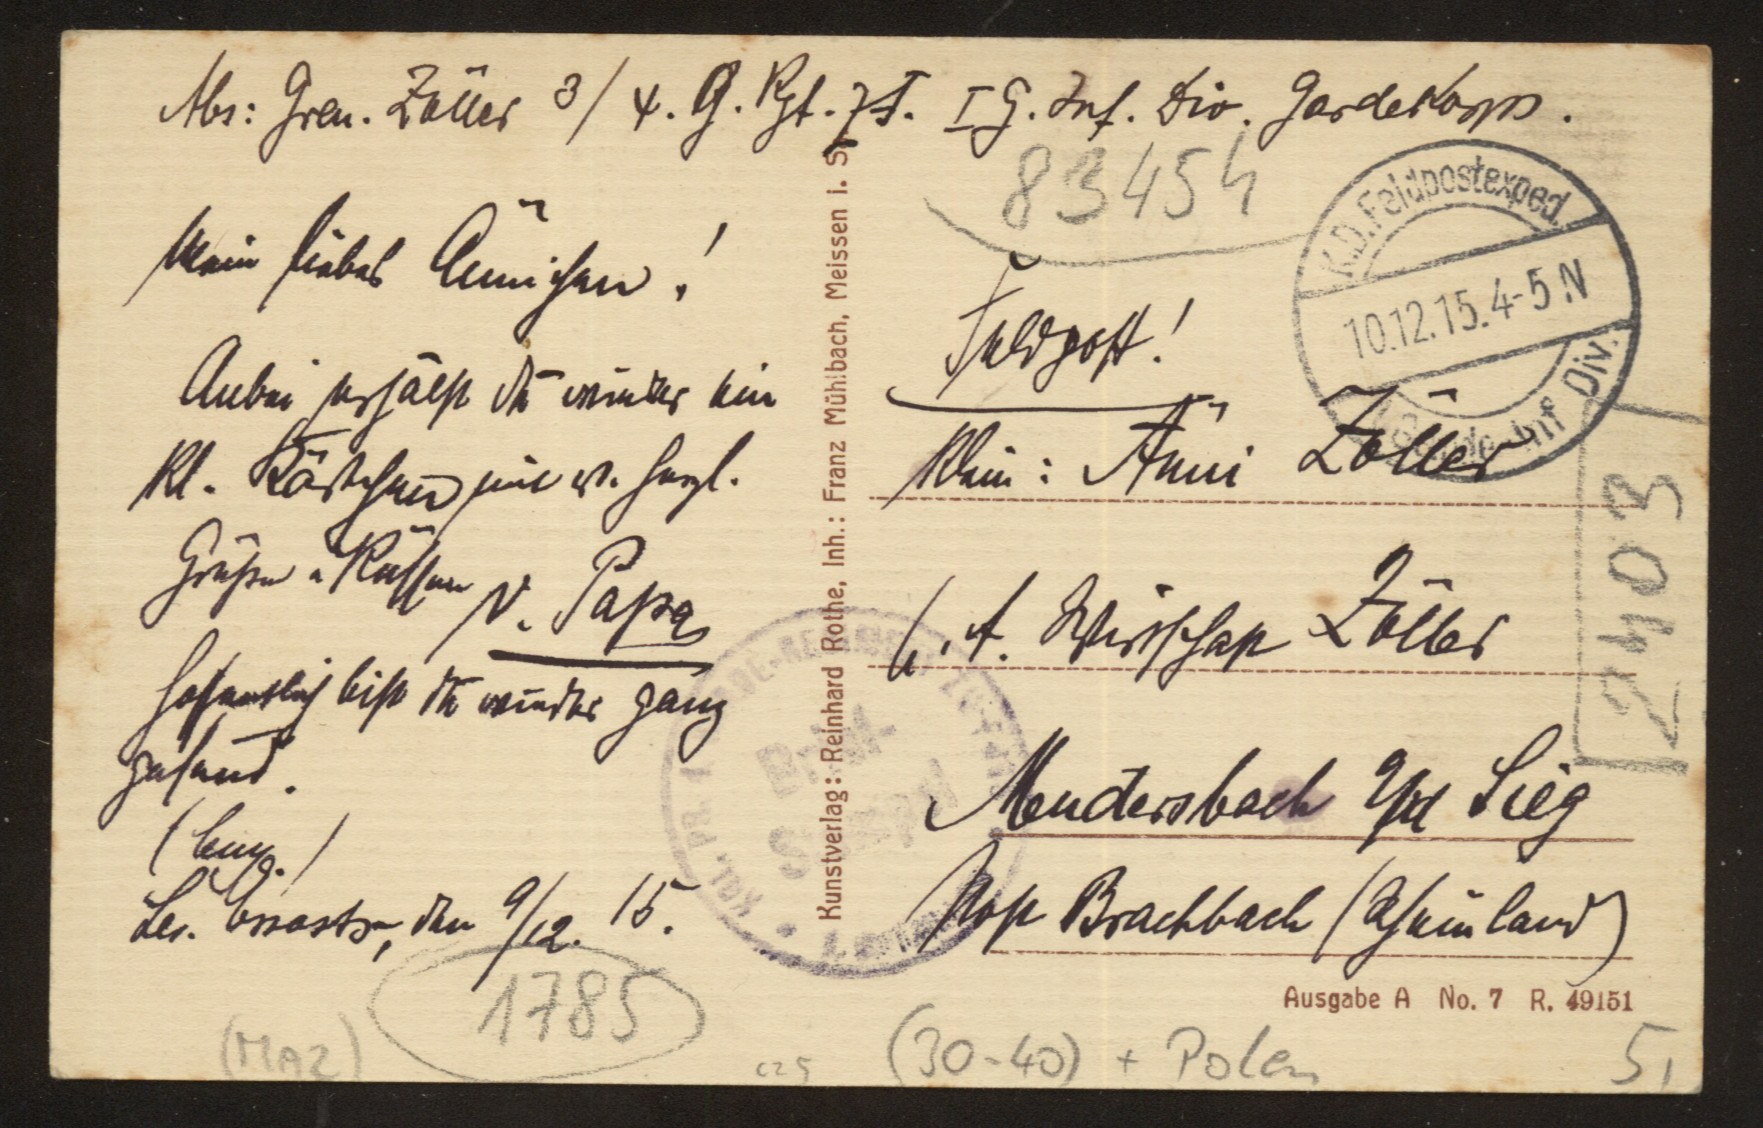 Abs: Gren. Zöller 3/4. G. Rgt. z. F. I G. Inf. Div. Gardekorps.
83454
K.D. Feldpostexped.
10.12.15. 4-5 N
Garde Inf Div.
Mein liebes Ännchen!
Anbei erhälst du wieder ein
kl. Kärtchen mit v. herzl.
Grüßen u. Küssen
v. Papa
Hoffentlich bist du wieder ganz
gesund.
den 9/12. 15.
Feldpost!
Klein: Änni Zöller
Wirtschaft Zöller
Mudersbach a/d Sieg
Post Brachbach (Rheinland)
2403
Kunstverlag: Reinhard Rothe, Inh.: Franz Mühlbach, Meissen i. S.
KGL. PR.
Ausgabe A No. 7 R. 49151
1785
(MAZ)
(30-40) + Polen
5,